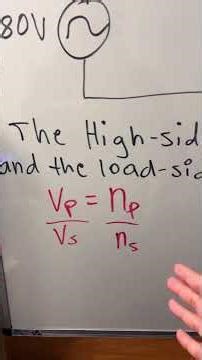 80V
The High-sid
and the load-sid
Vp = np
Vs ns